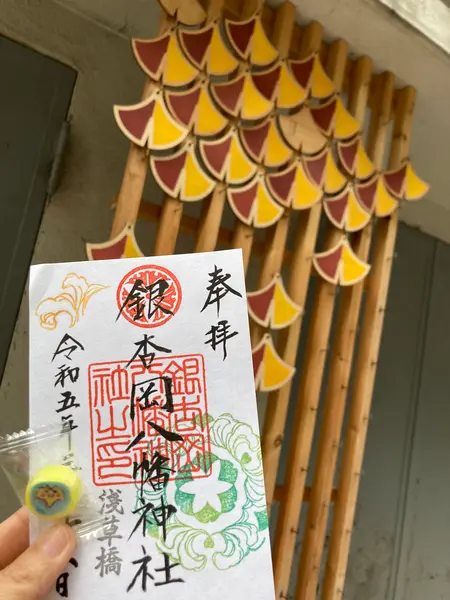 奉拝
銀杏岡八幡神社
銀杏岡
八幡神
社之印
浅草橋
令和五年